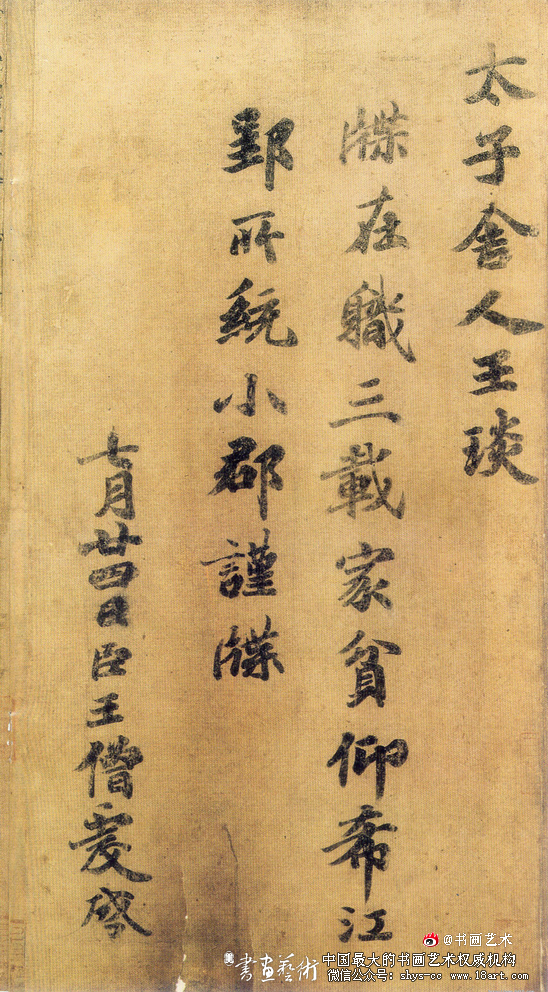 太子舍人王琰
牒在職三載家貧仰希江
郢所統小郡謹牒
七月廿四日臣王僧虔啓
@书画艺术
書畫藝術
中国最大的书画艺术权威机构
微信公众号: shys-cc www.18art.com